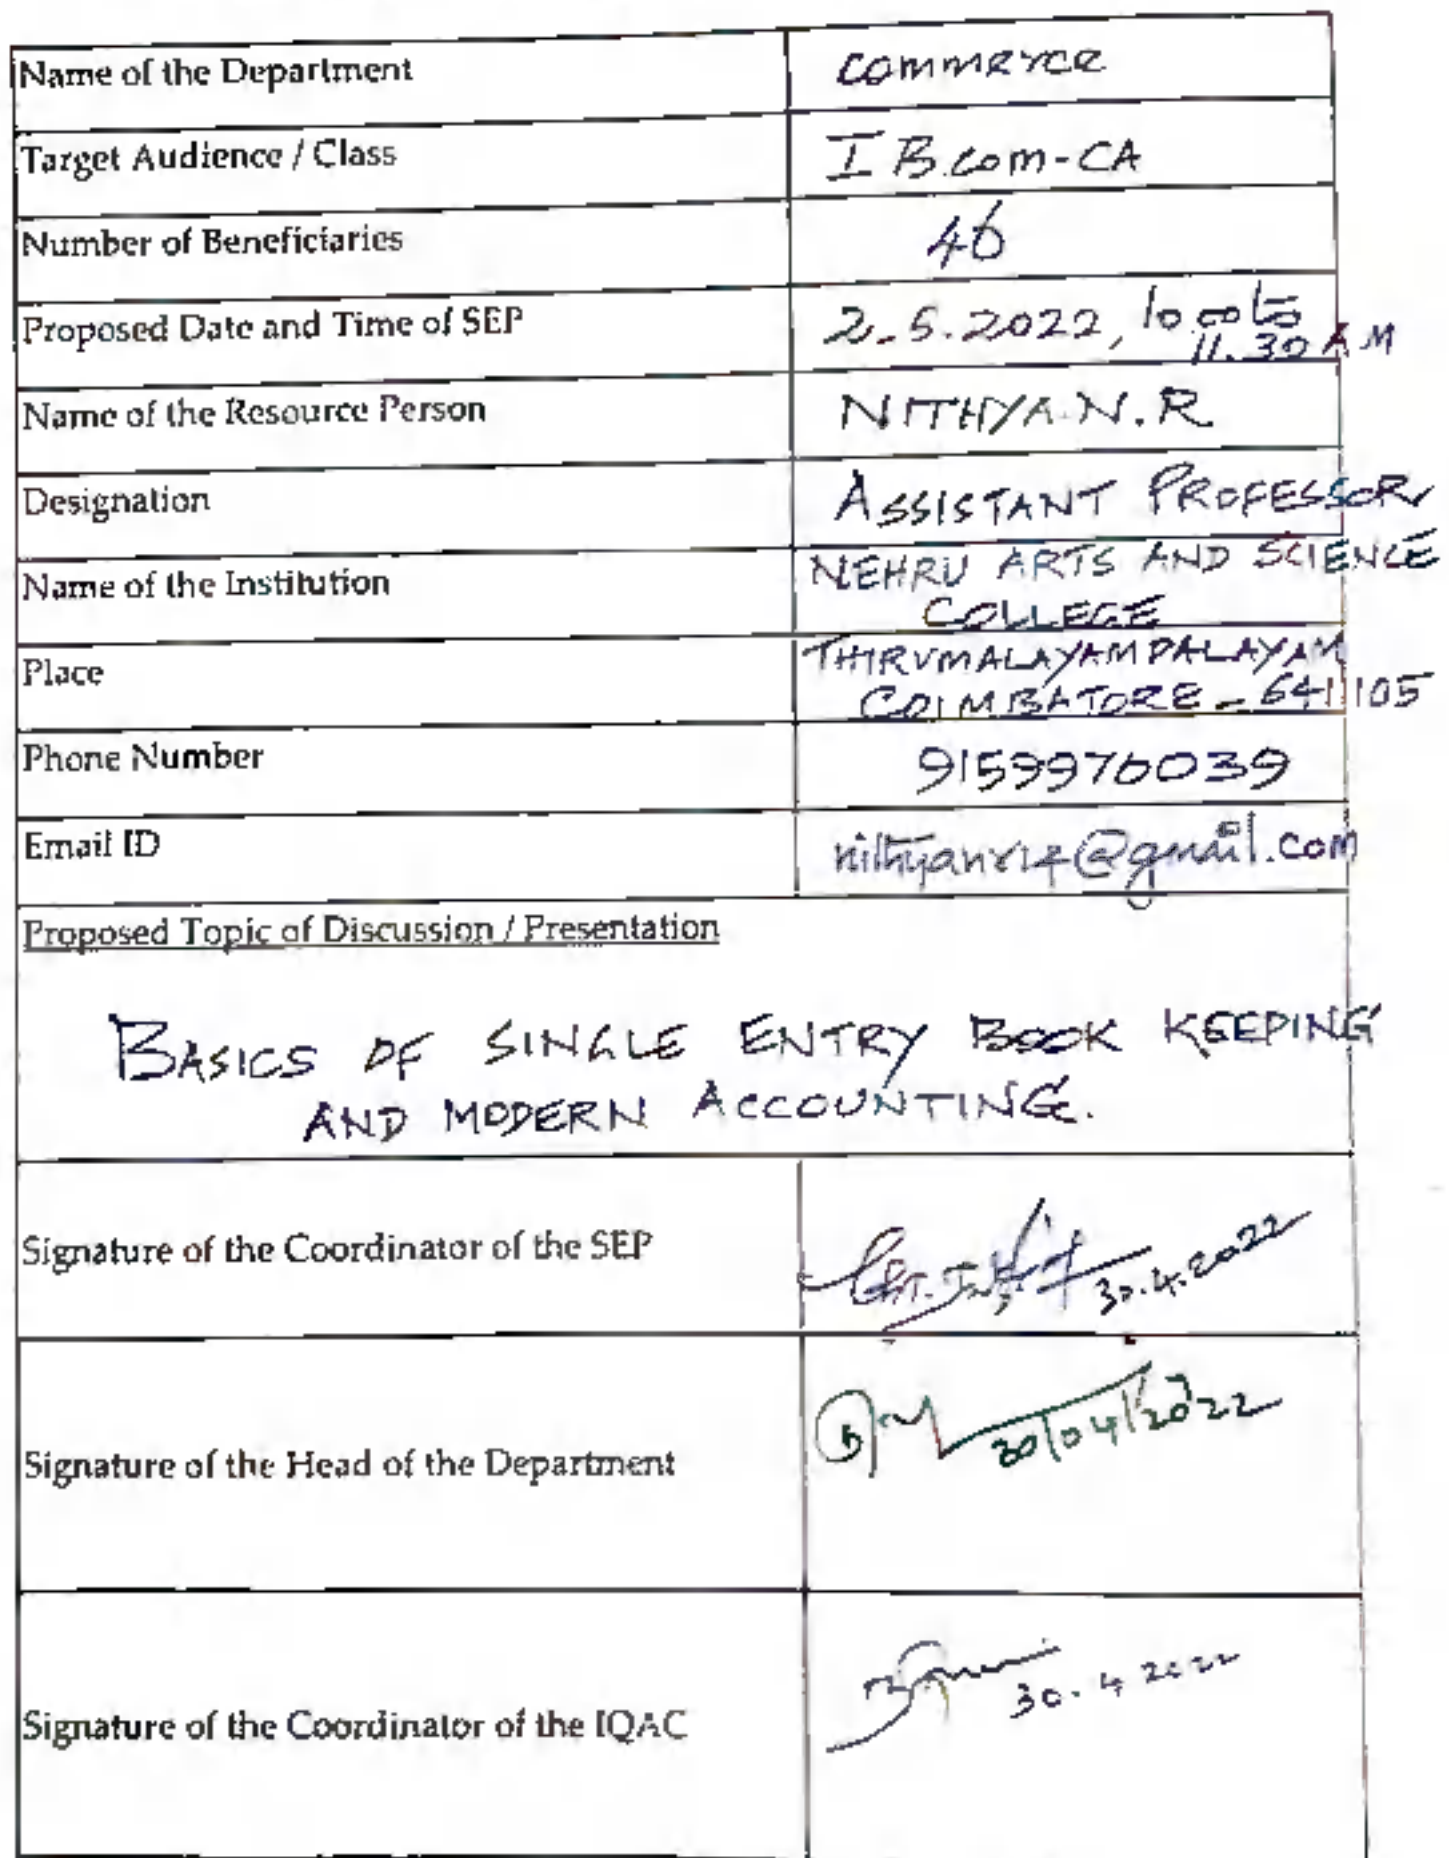 Name of the Department commerce
Target Audience / Class I B.com-CA
Number of Beneficiaries 46
Proposed Date and Time of SEP 2.5.2022, 10.00 to
11.30 AM
Name of the Resource Person NITHYA.N.R
Designation ASSISTANT PROFESSOR
Name of the Institution NEHRU ARTS AND SCIENCE
COLLEGE
Place THIRUMALAYAMPALAYAM
COIMBATORE - 641105
Phone Number 9159970039
Email ID nithyanr14@gmail.com
Proposed Topic of Discussion / Presentation
BASICS OF SINGLE ENTRY BOOK KEEPING
AND MODERN ACCOUNTING.
Signature of the Coordinator of the SEP 30.4.2022
Signature of the Head of the Department 30/04/2022
Signature of the Coordinator of the IQAC 30.4 2022